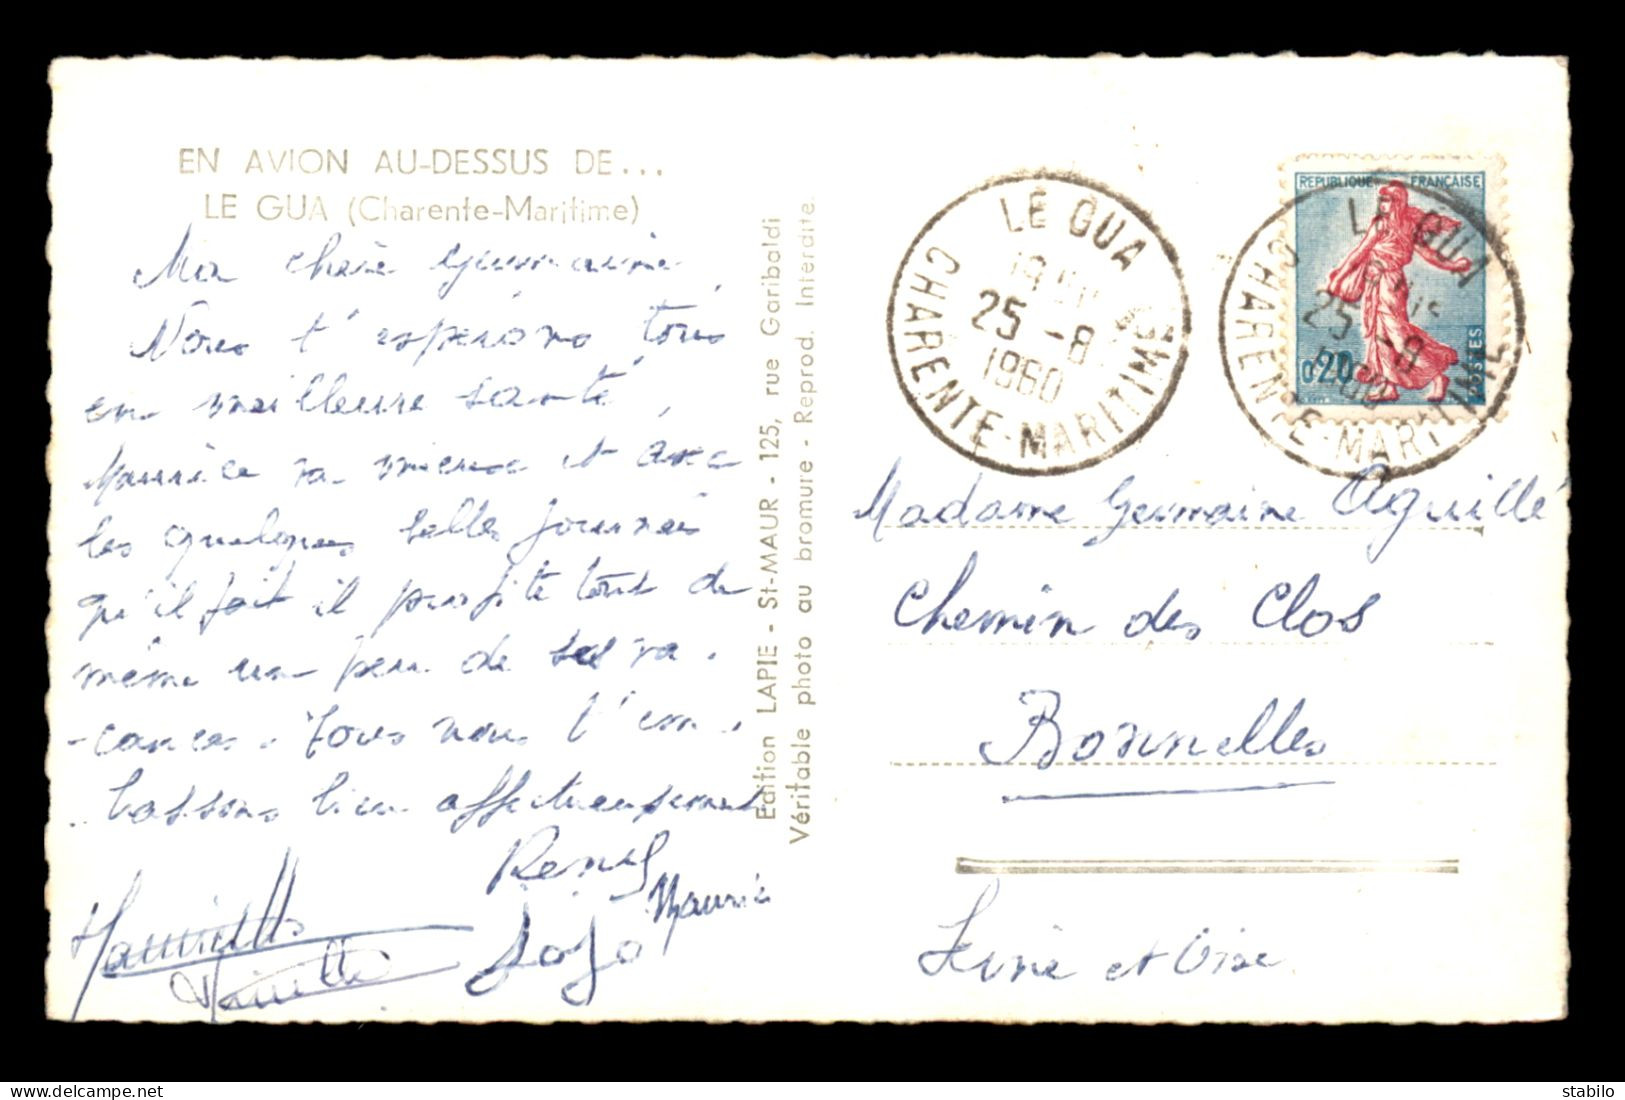 EN AVION AU-DESSUS DE...
LE GUA (Charente-Maritime)
Ma chère Germaine
Nous t'espérons tous
en meilleure santé,
Maurice va mieux et avec
les quelques belles journées
qu'il fait il profite tout de
même un peu de ses va.
-cances. Tous nous t'em.
.bassons bien affectueusement
René
Maurice
Jojo
Edition LAPIE - St-MAUR - 125, rue Garibaldi
Véritable photo au bromure - Reprod. Interdite.
LE GUA
25 -8
1960
CHARENTE-MARITIME
REPUBLIQUE FRANÇAISE
0,20
POSTES
LE GUA
25 -8
1960
CHARENTE-MARITIME
Madame Germaine Aguillé
Chemin des Clos
Bonnelles
Seine et Oise
delcampe.net
stabilo